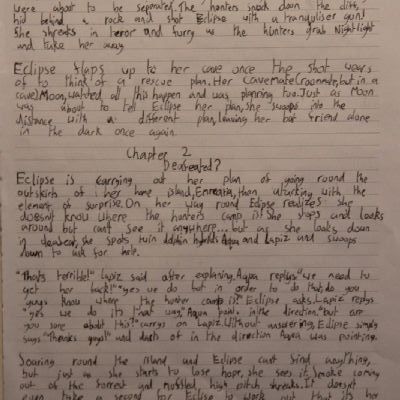 were about to be seperated. The hunters snuck down the cliff,
hid behind a rock and shot Eclipse with a tranquiliser gun!
She shreaks in terror and furry as the hunters grab Nightlight
and take her away.
Eclipse flaps up to her cave once the shot wears
of to think of a rescue plan. Her Cavemate(roommate, but in a
cave) Moon, watched all this happen and was planning too. Just as Moon
was about to tell Eclipse her plan, she swoops into the
distance with a different plan, leaving her bat friend alone
in the dark once again.
Chapter 2
Defeated?
Eclipse is carrying out her plan of going round the
outskirts of her home island, then attacking with the
element of surprise. On her way round Eclipse realizes she
doesn't know where the hunters camp is! She stops and looks
around but can't see it anywhere... but as she looks down
in despair, she spots twin dolphin hybrids Aqua and Lapiz and swoops
down to ask for help.
"That's terrible!" Lapiz said after explaining. Aqua replys "we need to
get her back!" "yes we do but in order to do that, do you
guys know where the hunter camp is?" Eclipse asks. Lapiz replys
"yes we do its that way," Aqua points in the direction. "but are
you sure about this?" carrys on Lapiz. Without answering, Eclipse simply
says "Thanks guys!" and dashes of in the direction Aqua was pointing.
Soaring round the island and Eclipse cant find anything,
but just as she starts to lose hope, she sees it. Smoke coming
out of the forrest and muffled, high pitch shreaks. It doesn't
even take a second for Eclipse to work out that its her